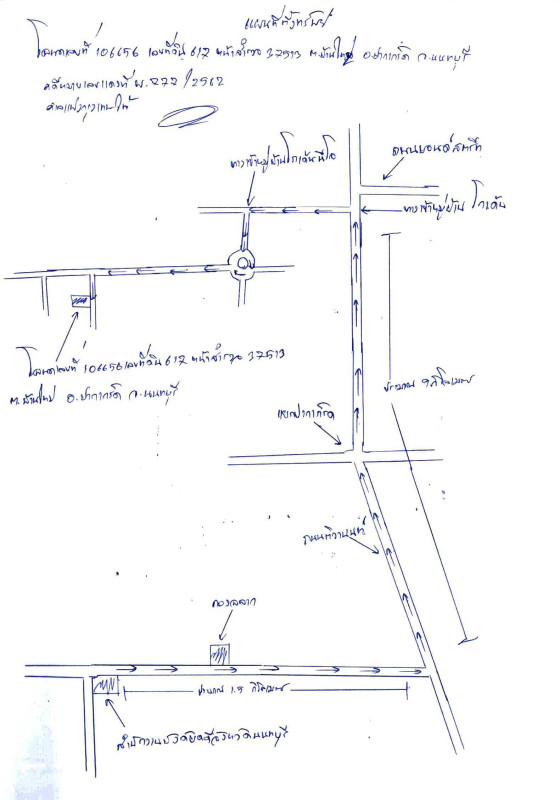 แผนที่ตั้งทรัพย์
โฉนดเลขที่ 106656 เลขที่ดิน 612 หน้าสำรวจ 37513 ต.บ้านใหม่ อ.ปากเกร็ด จ.นนทบุรี
คดีหมายเลขแดงที่ ผ.272/2562
ศาลแพ่งกรุงเทพใต้
ทางเข้าหมู่บ้านโกลเด้นนีโอ
ถนนบอนด์สตรีท
ทางเข้าหมู่บ้าน โกลเด้น
โฉนดเลขที่ 106656 เลขที่ดิน 612 หน้าสำรวจ 37513
ต.บ้านใหม่ อ.ปากเกร็ด จ.นนทบุรี
ประมาณ 9 กิโลเมตร
แยกปากเกร็ด
ถนนติวานนท์
กองสลาก
ประมาณ 1.5 กิโลเมตร
สำนักงานบังคับคดีจังหวัดนนทบุรี